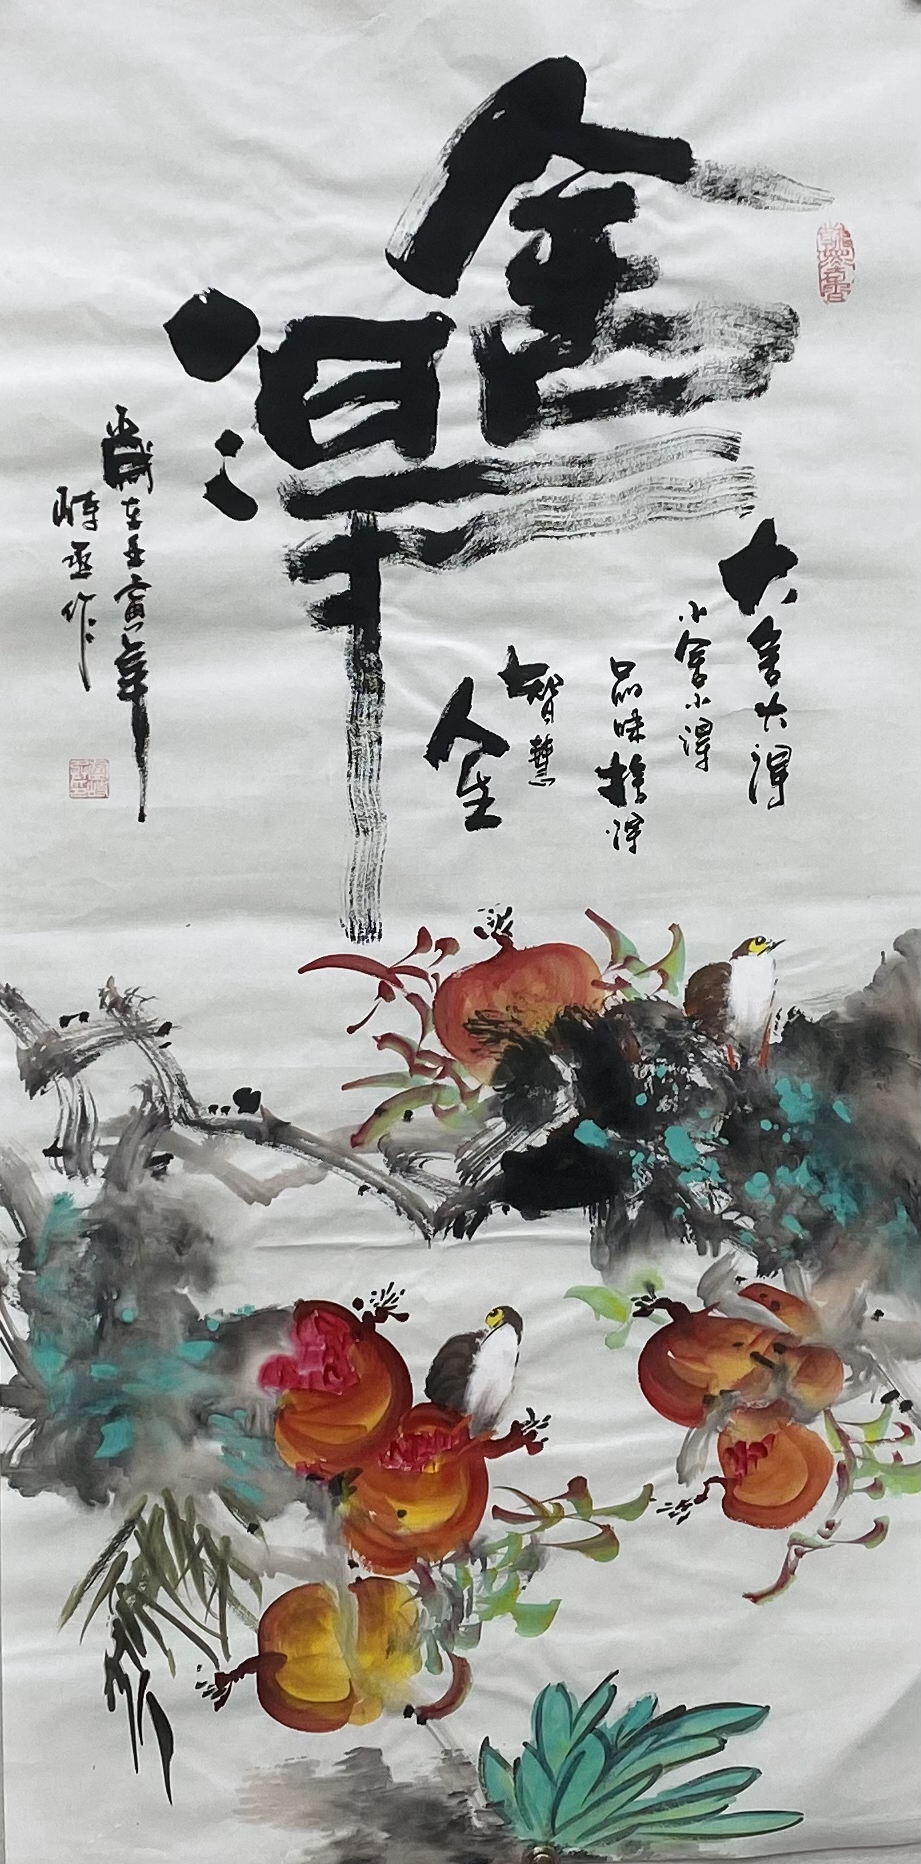 舍
得
大舍大得
小舍小得
品味捨得
智慧
人生
歲在壬寅年
作